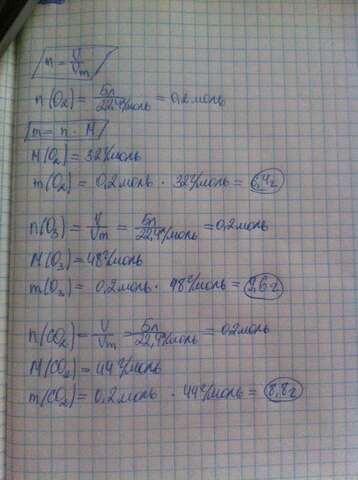 n = V/Vm
n(O₂) = 5л/22,4л/моль = 0,2 моль
m = n · M
M(O₂) = 32г/моль
m(O₂) = 0,2 моль · 32г/моль = 6,4г
n(O₃) = V/Vm = 5л/22,4л/моль = 0,2 моль
M(O₃) = 48г/моль
m(O₃) = 0,2 моль · 48г/моль = 9,6г
n(CO₂) = V/Vm = 5л/22,4л/моль = 0,2 моль
M(CO₂) = 44г/моль
m(CO₂) = 0,2 моль · 44г/моль = 8,8г